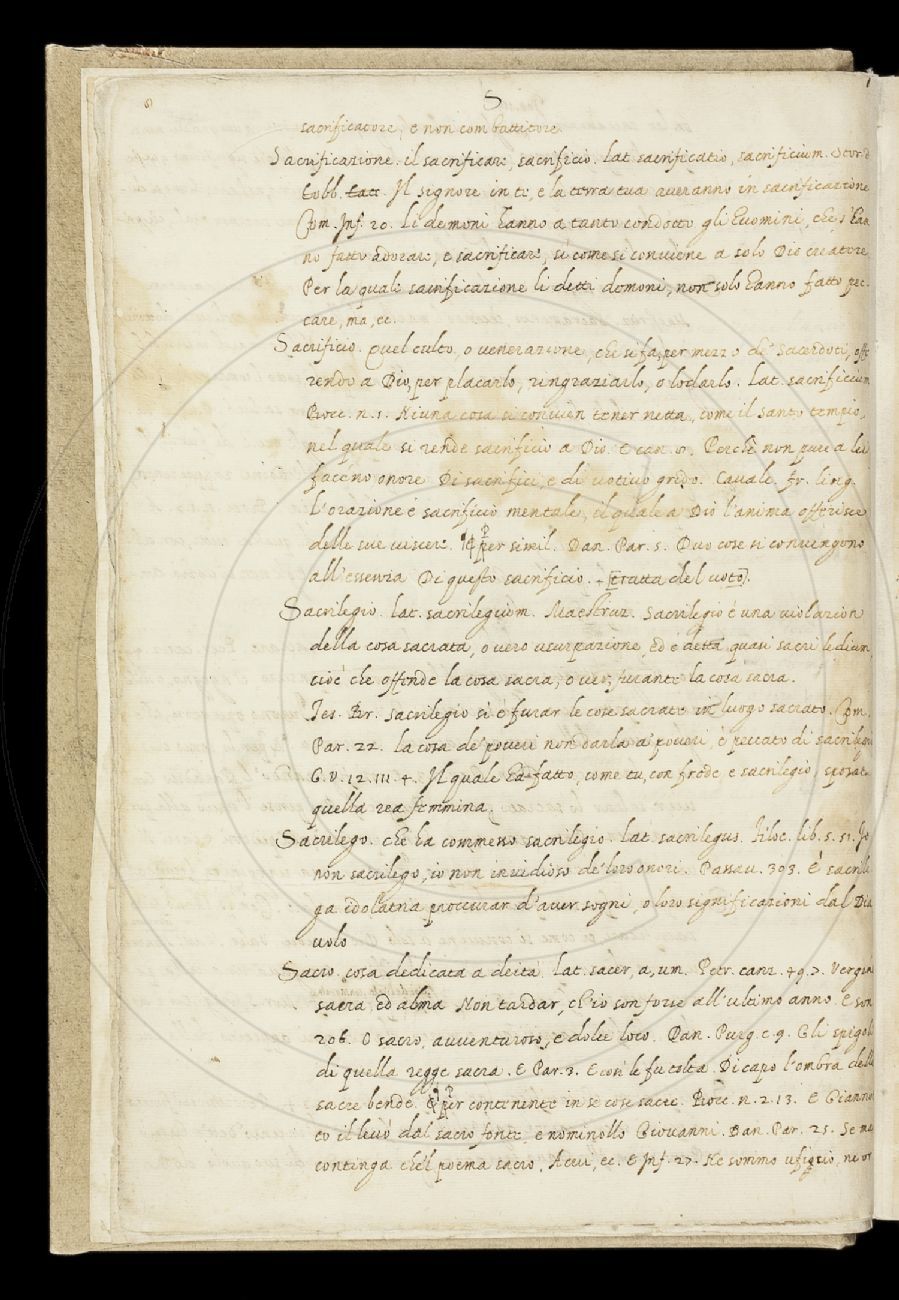 S
sacrificatore, e non combattitore.
Sacrificazione. il sacrificare, sacrificio. lat. sacrificatio, sacrificium. Stor.
Il signore in te, e la terra tua averanno in sacrificazione
Com. Inf. 20. li demoni hanno a tanto condotto gli huomini, che s'han
no fatto adorare, e sacrificare, sì come si conviene a solo Dio creatore
Per la quale sacrificazione li detti demoni, non solo hanno fatto pec-
care, ma, ec.
Sacrificio. quel culto, o venerazione, che si fa, per mezzo de' Sacerdoti, offe
rendo a Dio, per placarlo, ringraziarlo, o lodarlo. lat. sacrificium
Bocc. n. 1. Niuna cosa si convien tener netta, come il santo tempio,
nel quale si rende sacrificio a Dio. E can. Perchè non pure a lei
facéno onore Di sacrifici, e di votivo grido. Cavalc. fr. ling.
l'orazione è sacrificio mentale, il quale a Dio l'anima offerisce
delle sue viscere. per simil. Dan. Par. 5. Duo cose si convengono
all'essenza Di questo sacrificio. [tratta del voto].
Sacrilegio. lat. sacrilegium. Maestruz. Sacrilegio è una violazion
della cosa sacrata, o vero usurpazione, ed è detta quasi sacri ledium,
cioè che offende la cosa sacra, o ver, furante la cosa sacra.
Tes. Br. sacrilegio si è furar le cose sacrate in luogo sacrato. Com.
Par. 22. la cosa de' poveri non darla a' poveri, è peccato di sacrilegio
G. V. 12. 111. 4. Il quale ha fatto, come tu, con frode, e sacrilegio, sposat
quella rea femmina.
Sacrilego. che ha commesso sacrilegio. lat. sacrilegus. Filoc. lib. 5. 51. Io
non sacrilego, io non invidioso de' loro onori. Passav. 303. È sacrile
ga idolatria proccurar d'aver sogni, o loro significazioni dal Dia
volo
Sacro. cosa dedicata a deità. lat. sacer, a, um. Petr. canz. 49. 7. Vergine
sacra, ed alma Non tardar, ch'io son forse all'ultimo anno. E son
206. O sacro, avventuroso, e dolce loco. Dan. Purg. c. 9. Gli spigoli
di quella regge sacra. E Par. 3. E così le fu tolta Di capo l'ombra delle
sacre bende. per contenente in se cose sacre. Bocc. n. 2. 13. E Giannot
to il levò dal sacro fonte, e nominollo Giovanni. Dan. Par. 25. Se mai
continga che'l poema sacro, Acui, ec. E Inf. 27. Ne sommo uficio, ne or